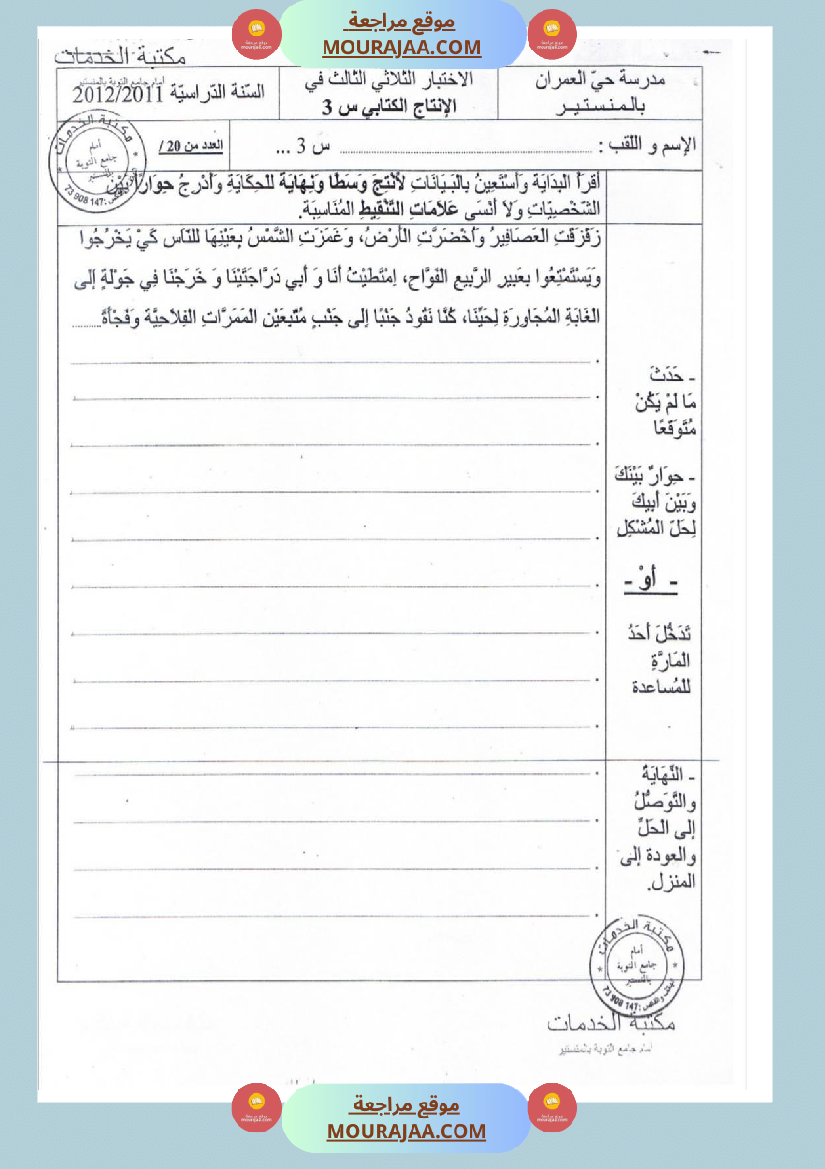 موقع مراجعة
MOURAJAA.COM
مكتبة الخدمات
أمام جامع التوبة بالمنستير
مدرسة حيّ العمران
بالمنستير
الاختبار الثلاثي الثالث في
الإنتاج الكتابي س 3
السّنة الدّراسيّة 2012/2011
الإسم و اللقب : ........ س 3 ...
العدد من 20 /
مكتبة الخدمات
أمام
جامع التوبة
73 908 147
أَقْرَأُ البِدَايَةَ وَأَسْتَعِينُ بِالبَيَانَاتِ لأُنْتِجَ وَسَطًا وَنِهَايَةً للحِكَايَةِ وَأُدْرِجُ حِوَارًا بَيْنَ
الشَّخْصِيّاتِ وَلاَ أَنْسَى عَلاَمَاتِ التَّنْقِيطِ المُنَاسِبَة.
زَقْزَقَتِ العَصَافِيرُ وَاُخْضَرَّتِ الأَرْضُ، وَغَمَزَتِ الشَّمْسُ بِعَيْنِهَا للنّاس كَيْ يَخْرُجُوا
وَيَسْتَمْتِعُوا بِعَبِيرِ الرَّبِيعِ الفَوَّاحِ، اِمْتَطَيْتُ أَنَا وَ أَبِي دَرَّاجَتَيْنَا وَ خَرَجْنَا فِي جَوْلَةٍ إلَى
الغَابَةِ المُجَاوِرَةِ لِحَيِّنَا، كُنَّا نَقُودُ جَنْبًا إلَى جَنْبٍ مُتَّبِعَيْنِ المَمَرَّاتِ الفِلاَحِيَّة وَفَجْأَةً........
- حَدَثَ
مَا لَمْ يَكُنْ
مُتَوَقَّعًا
- حِوَارٌ بَيْنَكَ
وَبَيْنَ أَبِيكَ
لِحَلِّ المُشْكِلِ
- أَوْ -
تَدَخُّلَ أَحَدُ
المَارَّةِ
للمُساعدة
- النِّهَايَةُ
والتَّوَصُّلُ
إلى الْحَلِّ
والعودة إلى
المنزل.
مكتبة الخدمات
أمام
جامع التوبة
بالمنستير
73 908 147
مكتبة الخدمات
أمام جامع التوبة بالمنستير
موقع مراجعة
MOURAJAA.COM